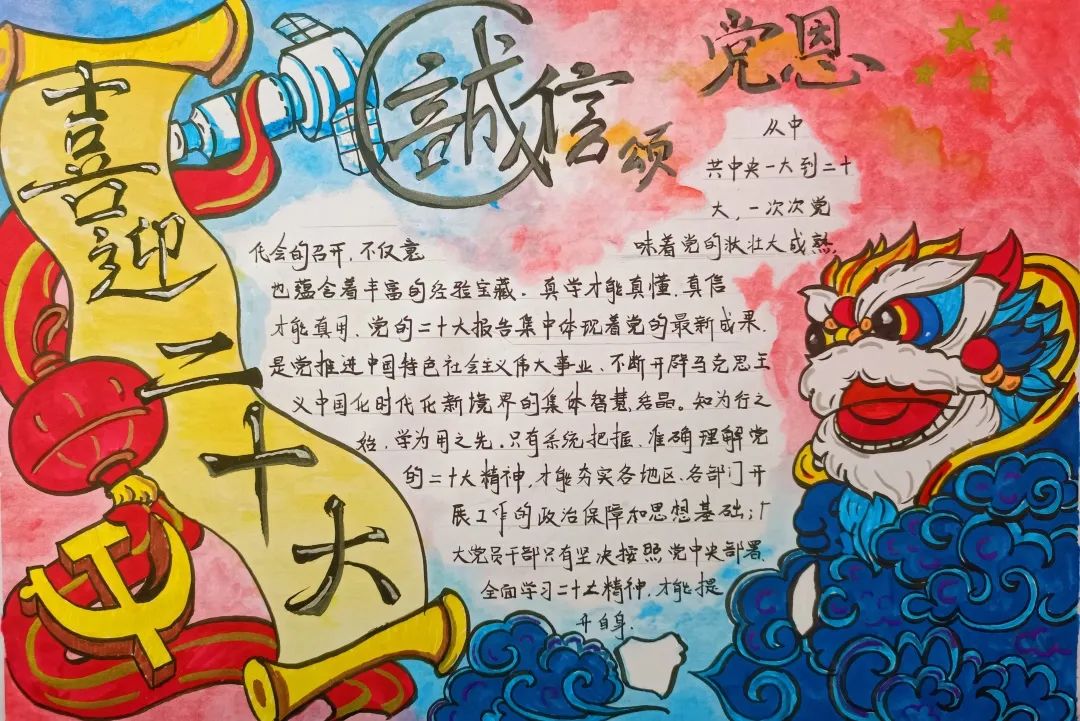 喜迎二十大
誠信颂
党恩
从中
共中央一大到二十
大,一次次党
代会的召开,不仅意
味着党的状壮大成熟,
也蕴含着丰富的经验宝藏。真学才能真懂、真信
才能真用、党的二十大报告集中体现着党的最新成果、
是党推进中国特色社会主义伟大事业、不断开辟马克思主
义中国化时代化新境界的集体智慧结晶。知为行之
始,学为用之先。只有系统把握、准确理解党
的二十大精神,才能夯实各地区、各部门开
展工作的政治保障和思想基础;广
大党员干部只有坚决按照党中央部署、
全面学习二十大精神,才能提
升自身.